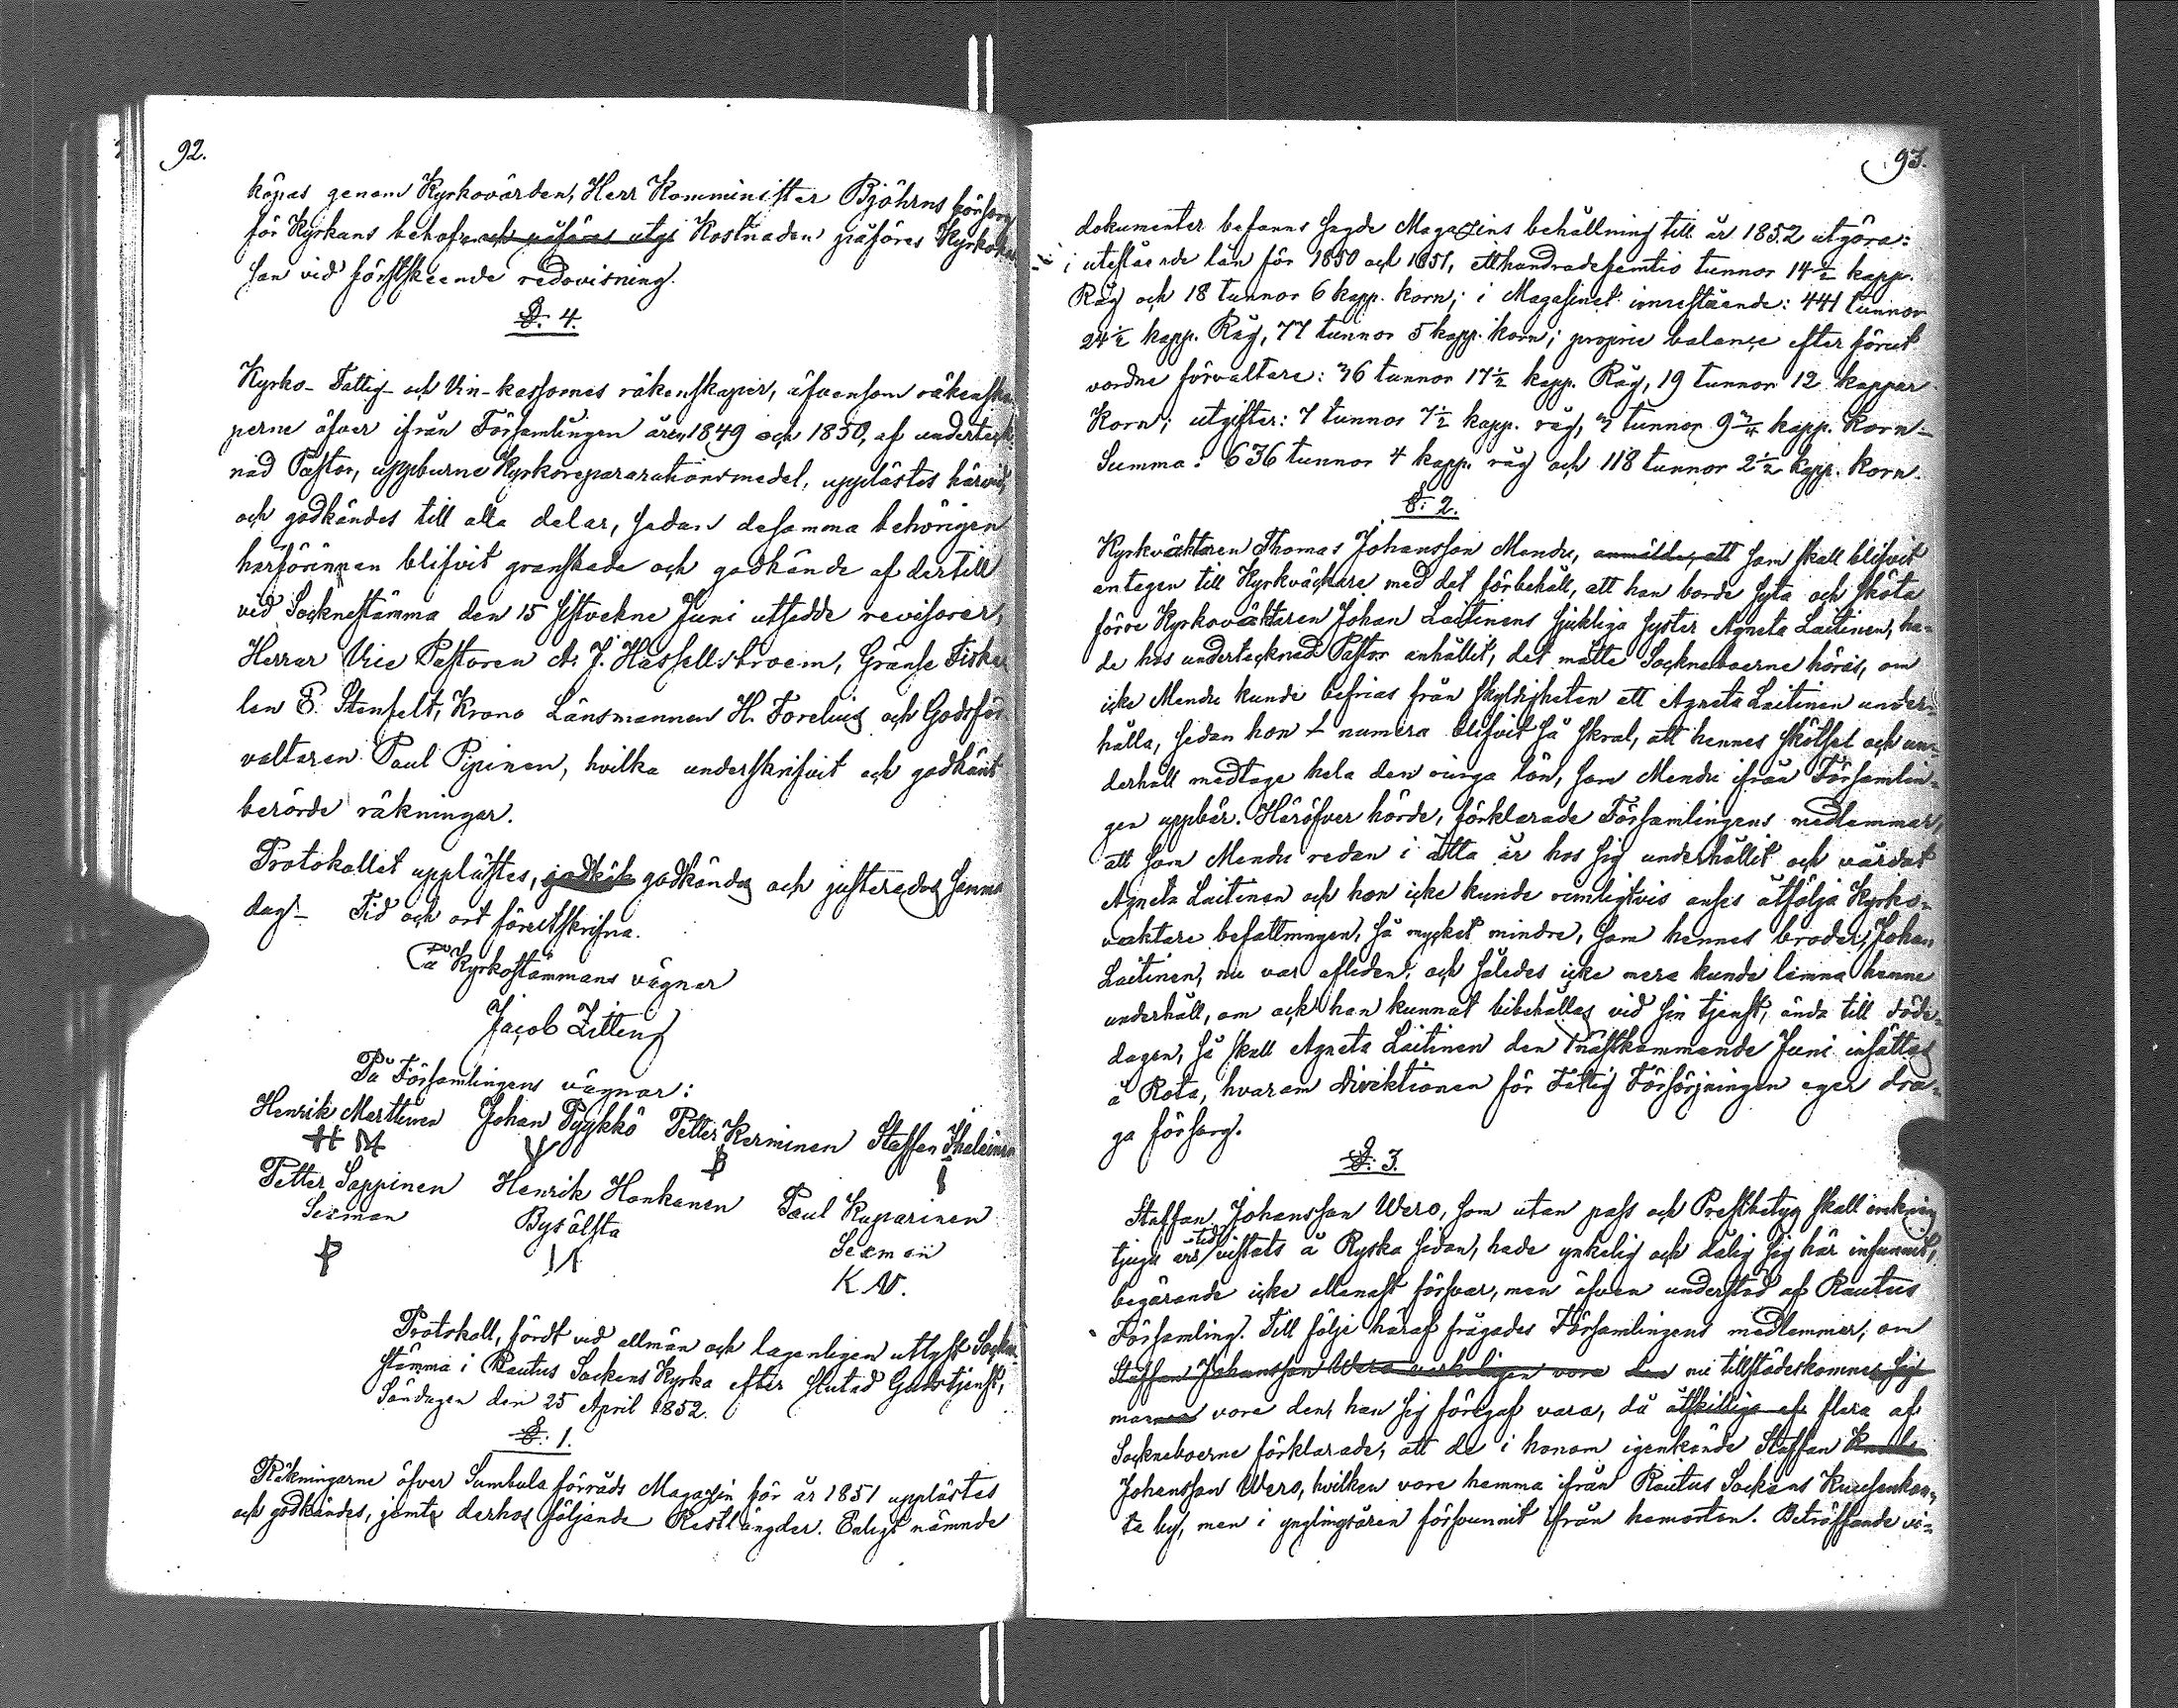 92.
köpas genom Kyrkovärden, Herr Komminister Björhns försorg
för Kyrkans behof, och påföres utgi Kostnaden påföres Kyrkokas
san vid förstskeende redovisning.
§. 4.
Kyrko- Fattig- och Vin-kassornes räkenskaper, äfvensom räkenska
perne öfver ifrån Församlingen åren 1849 och 1850, af underteck
nad Pastor, uppburne Kyrkoreparationsmedel, upplästes härvid,
och godkändes till alla delar, sedan desamma behörigen
härförinnan blifvit granskade och godkände af dertill
vid Socknestämma den 15 sistvekne Juni utsedde revisorer,
Herrar Vice Pastoren A. J. Hasselblroem, Gränse Fiska
len P. Stenfelt, Krono Länsmannen H. Forelius och Godsför
valtaren Paul Pipinen, hvilka underskrifvit och godkänt
berörde räkningar.
Protokollet upplästes, godkät godkändes och justerades samma
dag. Tid och ort föreskrifna.
På Kyrkostämmans vägnar
Jacob Zitting
På Församlingens vägnar:
Henrik Marttinen Johan Pyykkö Petter Kerminen Staffan Ihalainen
H M
Petter Sappinen Henrik Honkanen Paul Kuparinen
Sexman Bysälsta Sexman
P K N.
Protokoll, fördt vid allmän och lagenligen utlyst Sockne
stämma i Rautus Sockens Kyrka efter slutad Gudstjenst,
Söndagen den 25 April 1852.
§. 1.
Räkningarne öfver Sumbula förråds Magazin för år 1851 upplästes
och godkändes, jemte derhos följande Restlängder. Enligt nämnde
93.
dokumenter befanns sagde Magazins behållning till år 1852 utgöra:
i utestående lån för 1850 och 1851, etthundradefemtio tunnor 14½ kapp.
Råg och 18 tunnor 6 kapp. korn; i Magasinet innestående: 441 tunnor
24½ kapp. Råg, 77 tunnor 5 kapp. korn; proprie balance efter förut
vordne förvaltare: 36 tunnor 17½ kapp. Råg, 19 tunnor 12 kappar
Korn; utgifter: 7 tunnor 7½ kapp. råg, 3 tunnor 9¾ kapp. Korn-
Summa: 636 tunnor 4 kapp. råg och 118 tunnor 2½ kapp. Korn.
§. 2.
Kyrkväktaren Thomas Johansson Mendu, anmälde, att som skall blifvit
antagen till Kyrkväktare med det förbehåll, att han borde syta och sköta
förre Kyrkoväktaren Johan Laitinens sjukliga syster Agneta Laitinen, ha-
de hos undertecknad Pastor anhållit, det måtte Sockneboerne höras, om
icke Mendu kunde befrias från skyldigheten att Agneta Laitinen under-
hålla, sedan hon numera blifvit så skral, att hennes skötsel och un-
derhåll medtage hela den ringa lön, som Mendu ifrån Församlin-
gen uppbär. Häröfver hörde, förklarade Församlingens medlemmar,
att som Mendu redan i åtta år hos sig underhållit och vårdat
Agneta Laitinen och hon icke kunde rimligtvis anses åtfölja Kyrko-
vaktare befattningen, så mycket mindre, som hennes broder, Johan
Laitinen, nu var afliden, och således icke mera kunde lemna henne
underhåll, om ock han kunnat bibehållas vid sin tjenst, ända till döde-
dagen, så skall Agneta Laitinen den 1 nästkommande Juni insättas
å Rota, hvarom Direktionen för Fattig Försörjningen eger dra-
ga försorg.
§. 3.
Staffan Johansson Wero, som utan pass och Prestbetyg skall omkring
tjugu års tid vistats å Ryska sidan, hade ynkelig och dålig sig här infunnit,
begärande icke allenast försvar, men äfven understöd af Rautus
Församling. Till följe häraf frågades Församlingens medlemmar, om
Staffan Johansson Wero verkeligen vore den nu tillstädeskomne sig
mannen vore den, han sig föregaf vara, då åtskillige af flera af
Sockneboerne förklarade, att de i honom igenkände Staffan
Johansson Wero, hvilken vore hemma ifrån Rautus Sockens Kuusenkan-
ta by, men i ynglingsåren försvunnit ifrån hemorten. Beträffande vi-